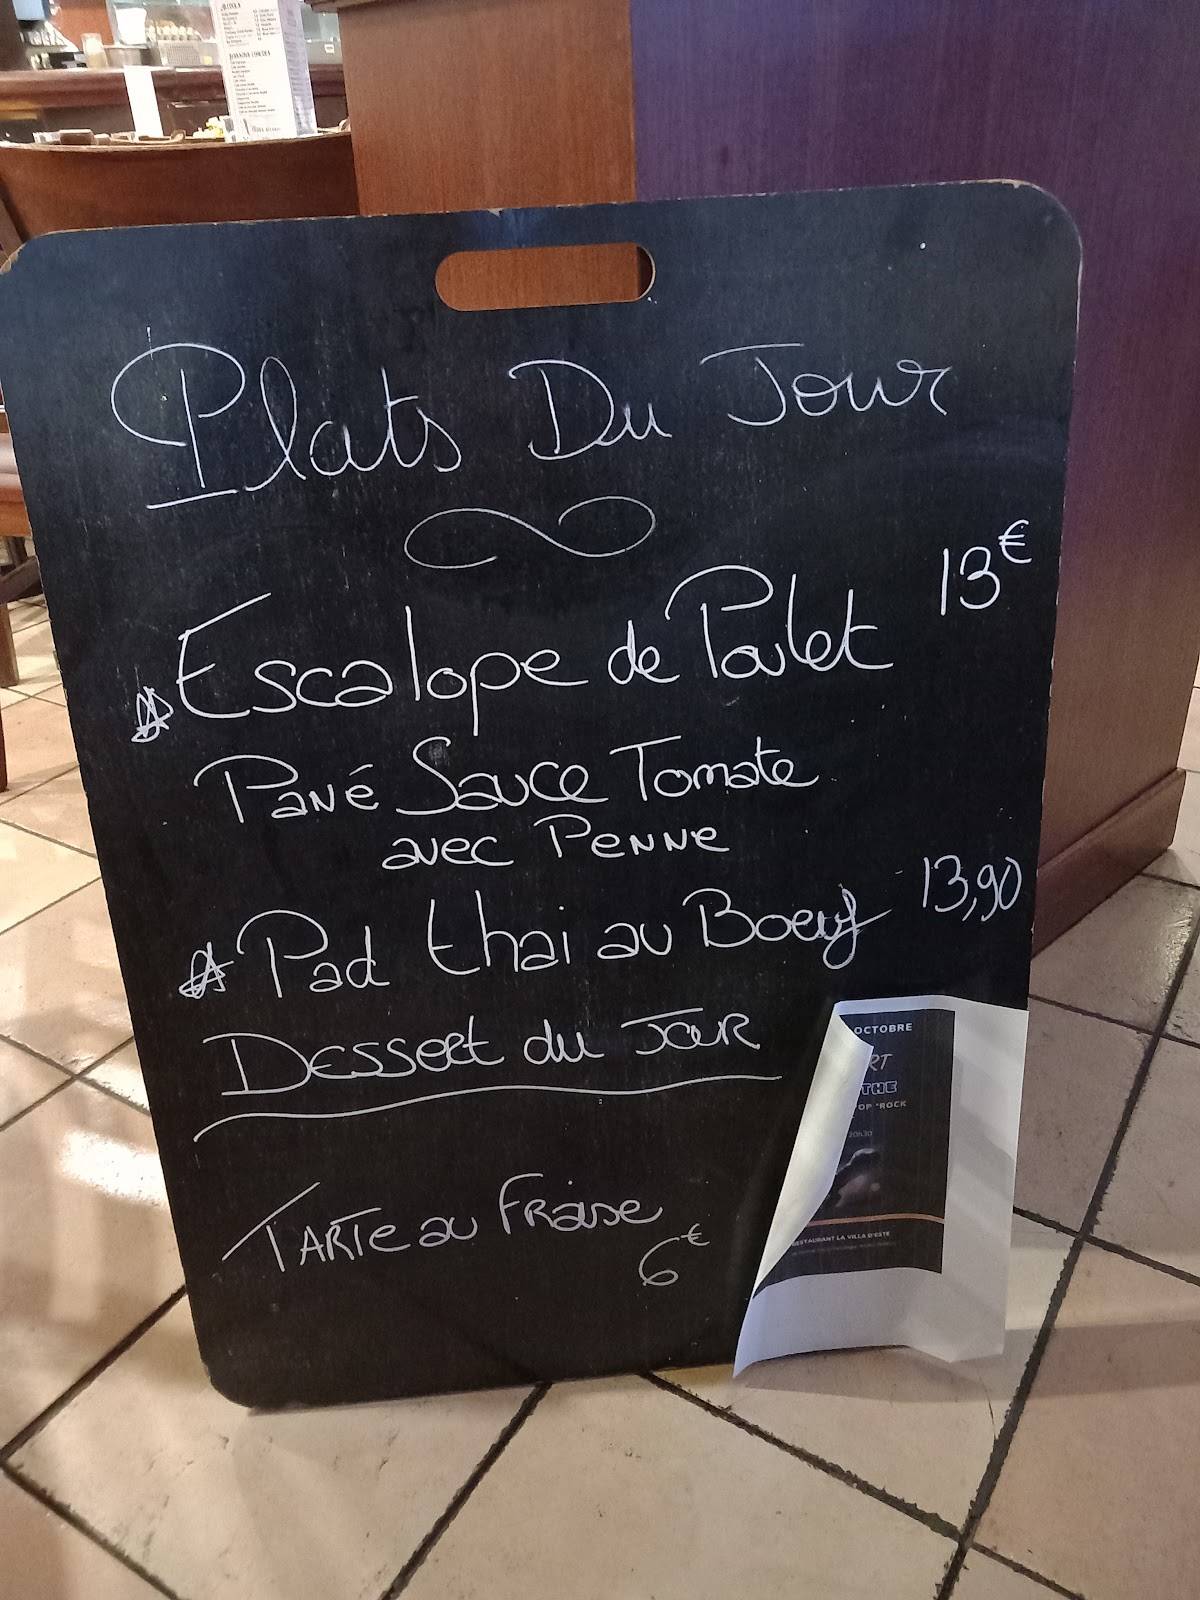 Plats Du Jour
Escalope de Poulet 13€
Pané Sauce Tomate
avec Penne
Pad thai au Boeuf 13,90
Dessert du Jour
Tarte au Fraise
6€
OCTOBRE
RT
THE
OP *ROCK
20h30
RESTAURANT LA VILLA D'ESTE